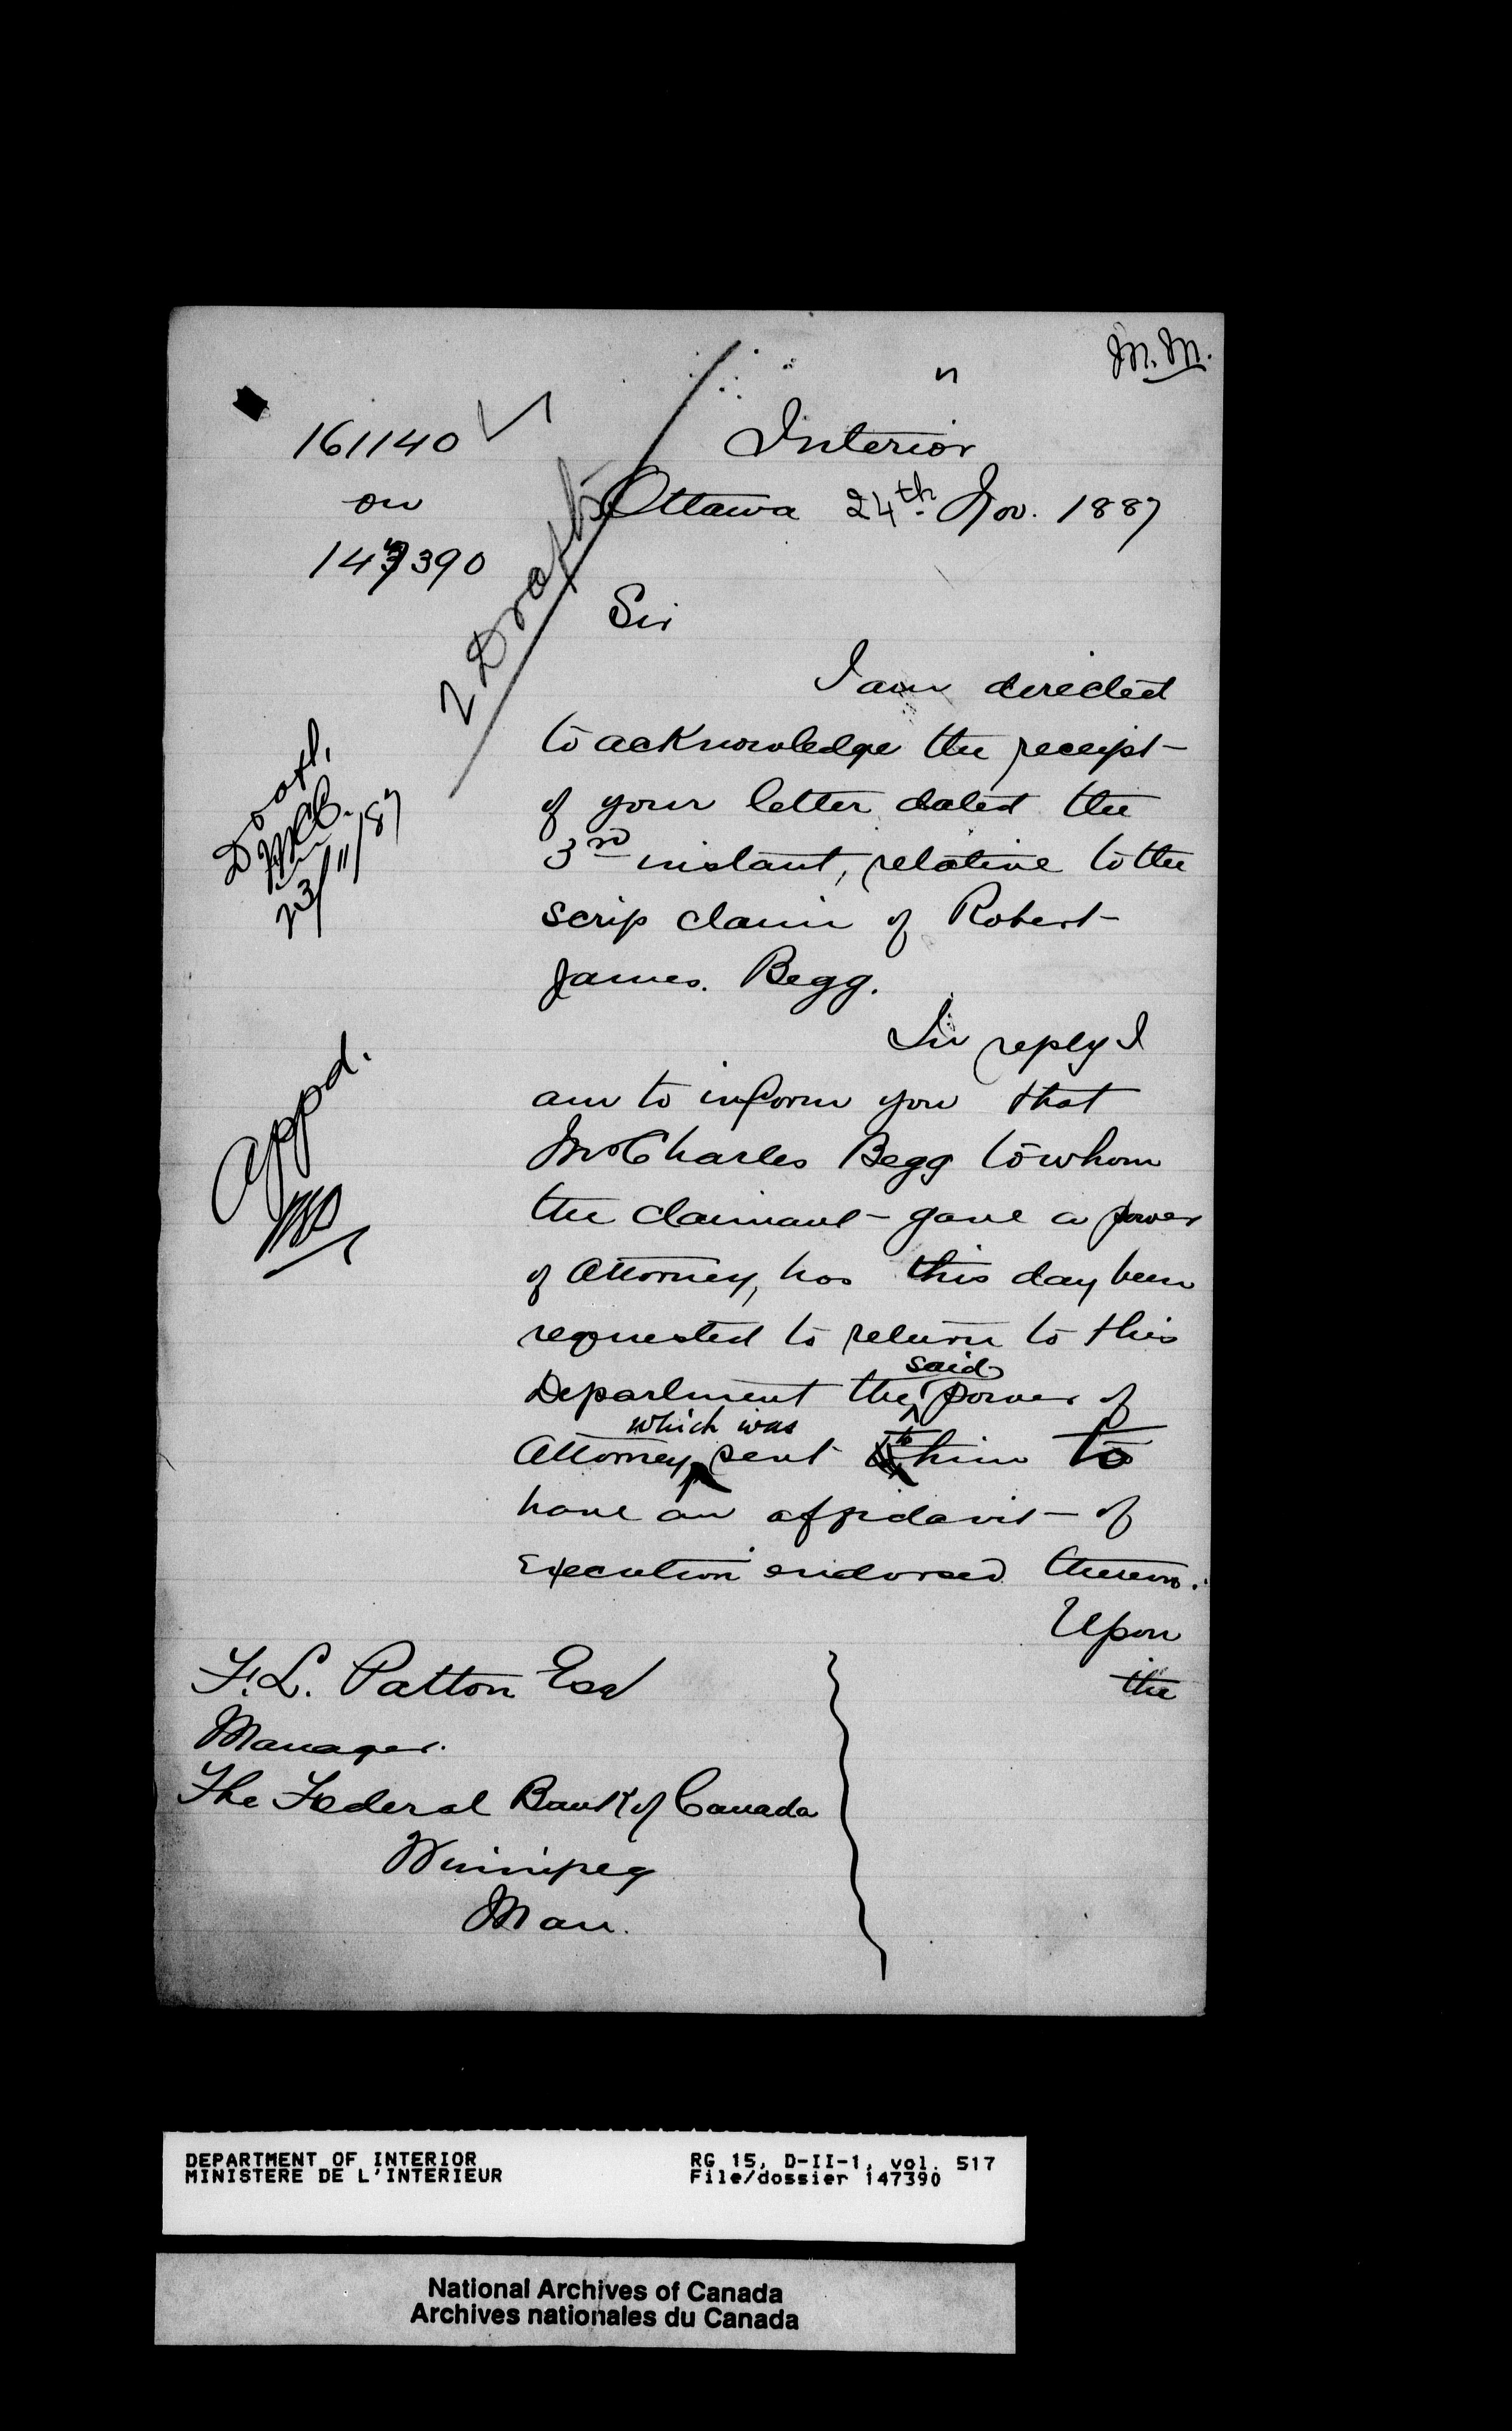 M.M.
161140
on
147390
Interior
Ottawa 24th Nov. 1887
2 Drafts
Sir
I am directed
to acknowledge the receipt
of your letter dated the
3rd instant, relative to the
scrip claim of Robert
James. Begg.
Draft,
23/11/87
In reply I
am to inform you that
Mr Charles Begg to whom
the claimant gave a power
of Attorney, has this day been
requested to return to this
Department the said power of
Attorney which was sent to him to
have an affidavit of
Execution endorsed thereon.
Appd.
Upon
the
F. L. Patton Esq
Manager.
The Federal Bank of Canada
Winnipeg
Man.
DEPARTMENT OF INTERIOR
MINISTERE DE L'INTERIEUR
RG 15, D-II-1, vol. 517
File/dossier 147390
National Archives of Canada
Archives nationales du Canada